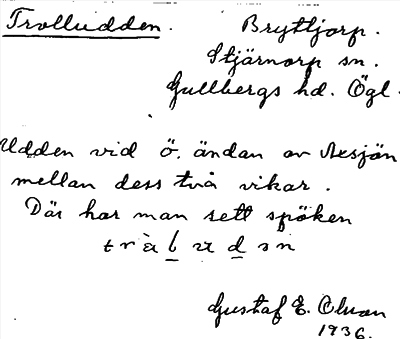 Trolludden. Bryttjorp.
Stjärnorp sn.
Gullbergs hd. Ögl.
Udden vid ö. ändan av Axsjön
mellan dess två vikar.
Där har man sett spöken
Gustaf E.
1936.